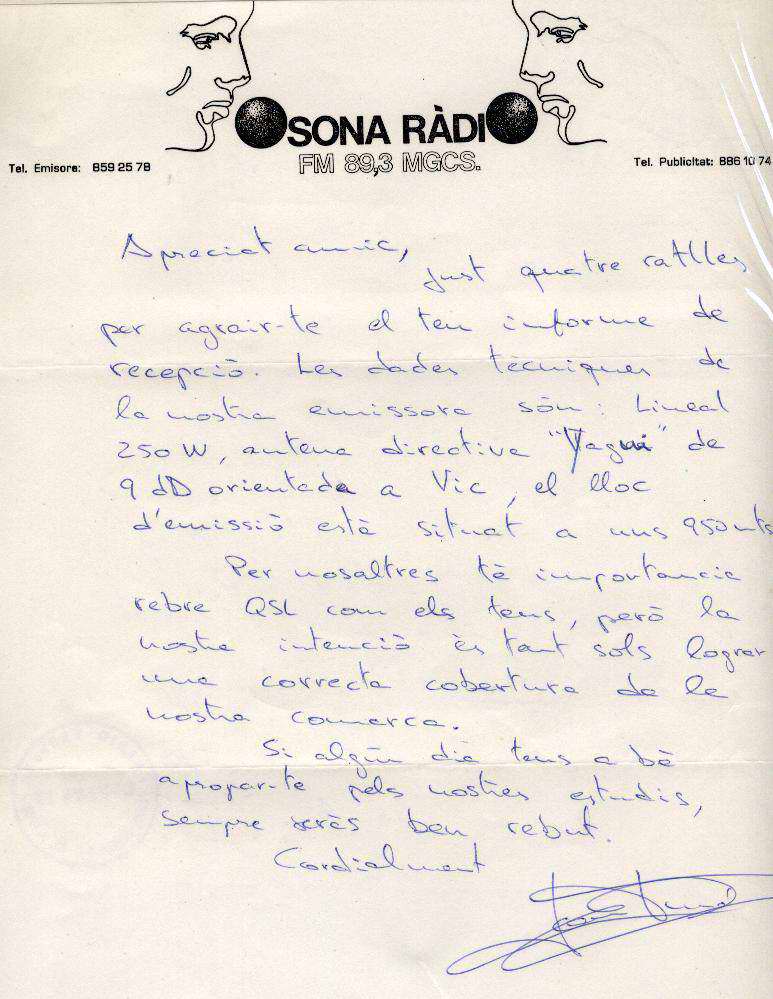 OSONA RÀDIO
FM 89,3 MGCS.
Tel. Emisora: 859 25 78
Tel. Publicitat: 886 10 74
Apreciat amic,
just quatre ratlles
per agrair-te el teu informe de
recepció. Les dades tècniques de
la nostra emissora són: Lineal
250 W, antena directiva "Yagui" de
9 dD orientada a Vic, el lloc
d'emissió està situat a uns 950 mts
Per nosaltres té importancia
rebre QSL com els teus, però la
nostra intenció és tant sols lograr
una correcta cobertura de la
nostra comarca.
Si algún dia tens a bé
apropar-te pels nostres estudis,
sempre seràs ben rebut.
Cordialment